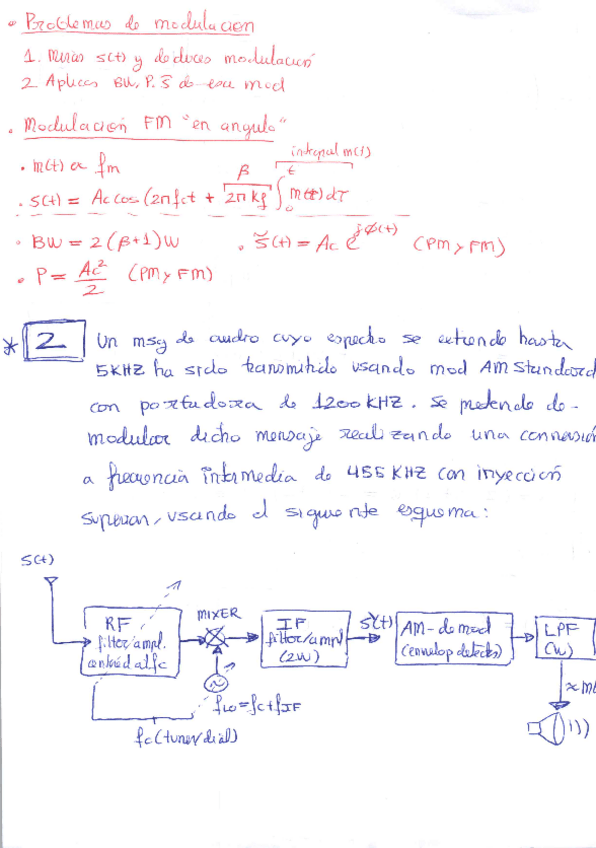 • Problemas de modulacion
1. Miras s(t) y deduces modulación
2. Aplicas BW, P, s̃ de esa mod
• Modulación FM "en angulo"
integral m(t)
• m(t) α fm
β
• s(t) = Ac cos (2πfct + 2π kf ∫₀ᵗ m(τ) dτ
• BW = 2(β+1)W • s̃(t) = Ac e^jφ(t) (PM y FM)
• P = Ac²/2 (PM y FM)
* 2 Un msg de audio cuyo espectro se extiende hasta
5KHZ ha sido transmitido usando mod AM Standard
con portadora de 1200 KHZ. Se pretende de-
modular dicho mensaje realizando una conversión
a frecuencia intermedia de 455 KHZ con inyección
superior, usando el siguiente esquema:
s(t)
RF
filter/ampl.
centred at fc
MIXER
IF
filter/ampl
(2W)
s̃(t)
AM-demod
(envelop detector)
LPF
(W)
≈ m(
fLO = fc + fIF
fc (tuner/dial)